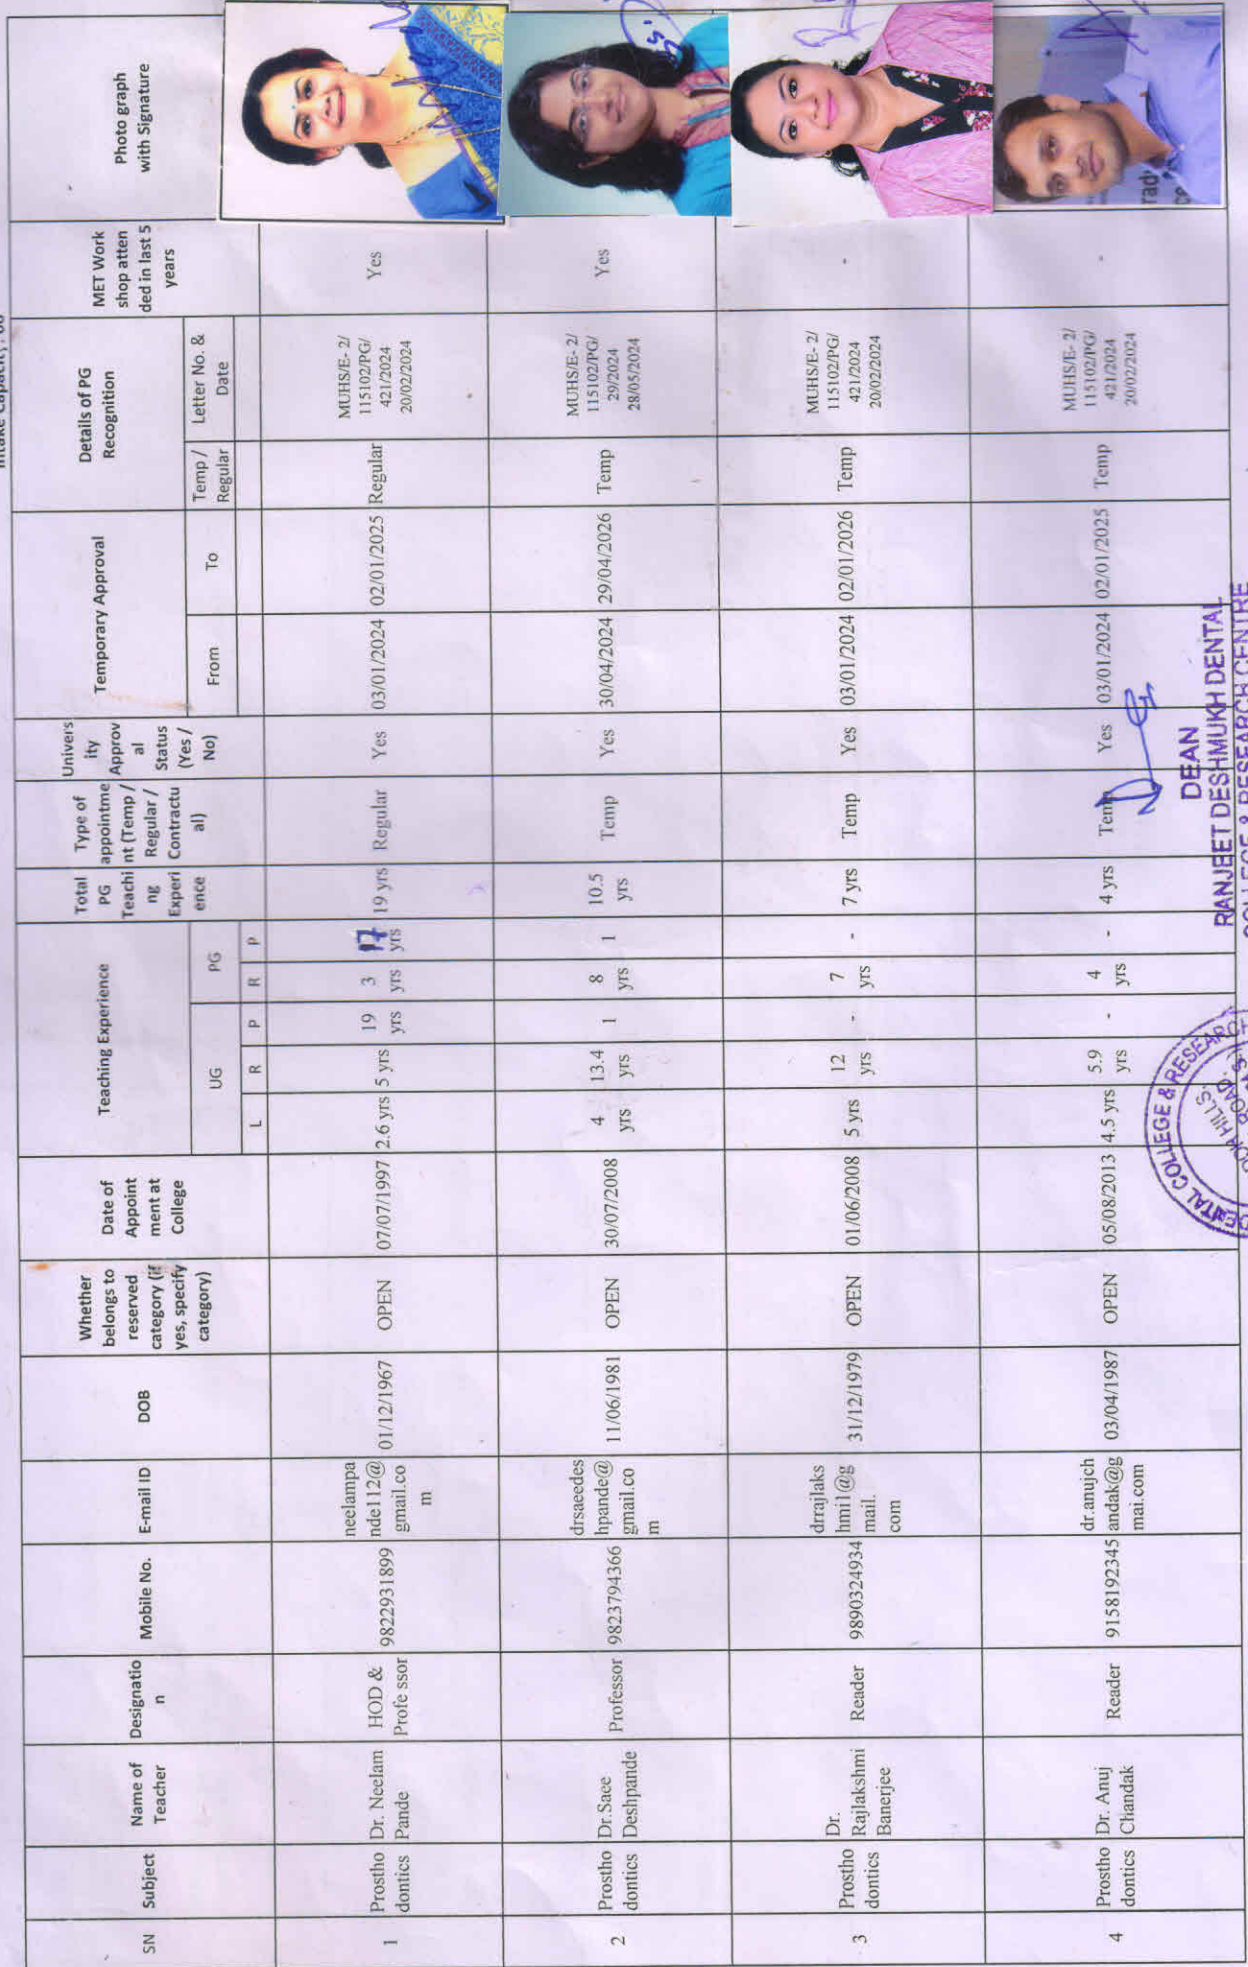 Intake Capacity: 06
SN
Subject
Name of
Teacher
Designatio
n
Mobile No.
E-mail ID
DOB
Whether
belongs to
reserved
category (if
yes, specify
category)
Date of
Appoint
ment at
College
Teaching Experience
UG
PG
L
R
P
R
P
Total
PG
Teachi
ng
Experi
ence
Type of
appointme
nt (Temp /
Regular /
Contractu
al)
Univers
ity
Approv
al
Status
(Yes /
No)
Temporary Approval
From
To
Details of PG
Recognition
Temp /
Regular
Letter No. &
Date
MET Work
shop atten
ded in last 5
years
Photo graph
with Signature
1
Prostho
dontics
Dr. Neelam
Pande
HOD &
Profe ssor
9822931899
neelampa
nde112@
gmail.co
m
01/12/1967
OPEN
07/07/1997
2.6 yrs
5 yrs
19
yrs
3
yrs
17
yrs
19 yrs
Regular
Yes
03/01/2024
02/01/2025
Regular
MUHS/E- 2/
115102/PG/
421/2024
20/02/2024
Yes
2
Prostho
dontics
Dr.Saee
Deshpande
Professor
9823794366
drsaeedes
hpande@
gmail.co
m
11/06/1981
OPEN
30/07/2008
4
yrs
13.4
yrs
1
8
yrs
1
10.5
yrs
Temp
Yes
30/04/2024
29/04/2026
Temp
MUHS/E- 2/
115102/PG/
29/2024
28/05/2024
Yes
3
Prostho
dontics
Dr.
Rajlakshmi
Banerjee
Reader
9890324934
drrajlaks
hmi1@g
mail.
com
31/12/1979
OPEN
01/06/2008
5 yrs
12
yrs
-
7
yrs
-
7 yrs
Temp
Yes
03/01/2024
02/01/2026
Temp
MUHS/E- 2/
115102/PG/
421/2024
20/02/2024
-
4
Prostho
dontics
Dr. Anuj
Chandak
Reader
9158192345
dr.anujch
andak@g
mai.com
03/04/1987
OPEN
05/08/2013
4.5 yrs
5.9
yrs
-
4
yrs
-
4 yrs
Temp
Yes
03/01/2024
02/01/2025
Temp
MUHS/E- 2/
115102/PG/
421/2024
20/02/2024
-
DENTAL COLLEGE & RESEARCH
HILLS,
ROAD
DEAN
RANJEET DESHMUKH DENTAL
COLLEGE & RESEARCH CENTRE